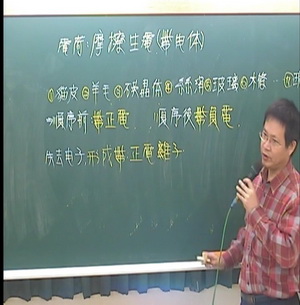 電荷:摩擦生電(帶电体)
①貓皮②羊毛③水晶体④絲綢⑤玻璃⑥木條…⑦
順序前帶正電 順序後帶負電
失去电子,形成帶正電離子